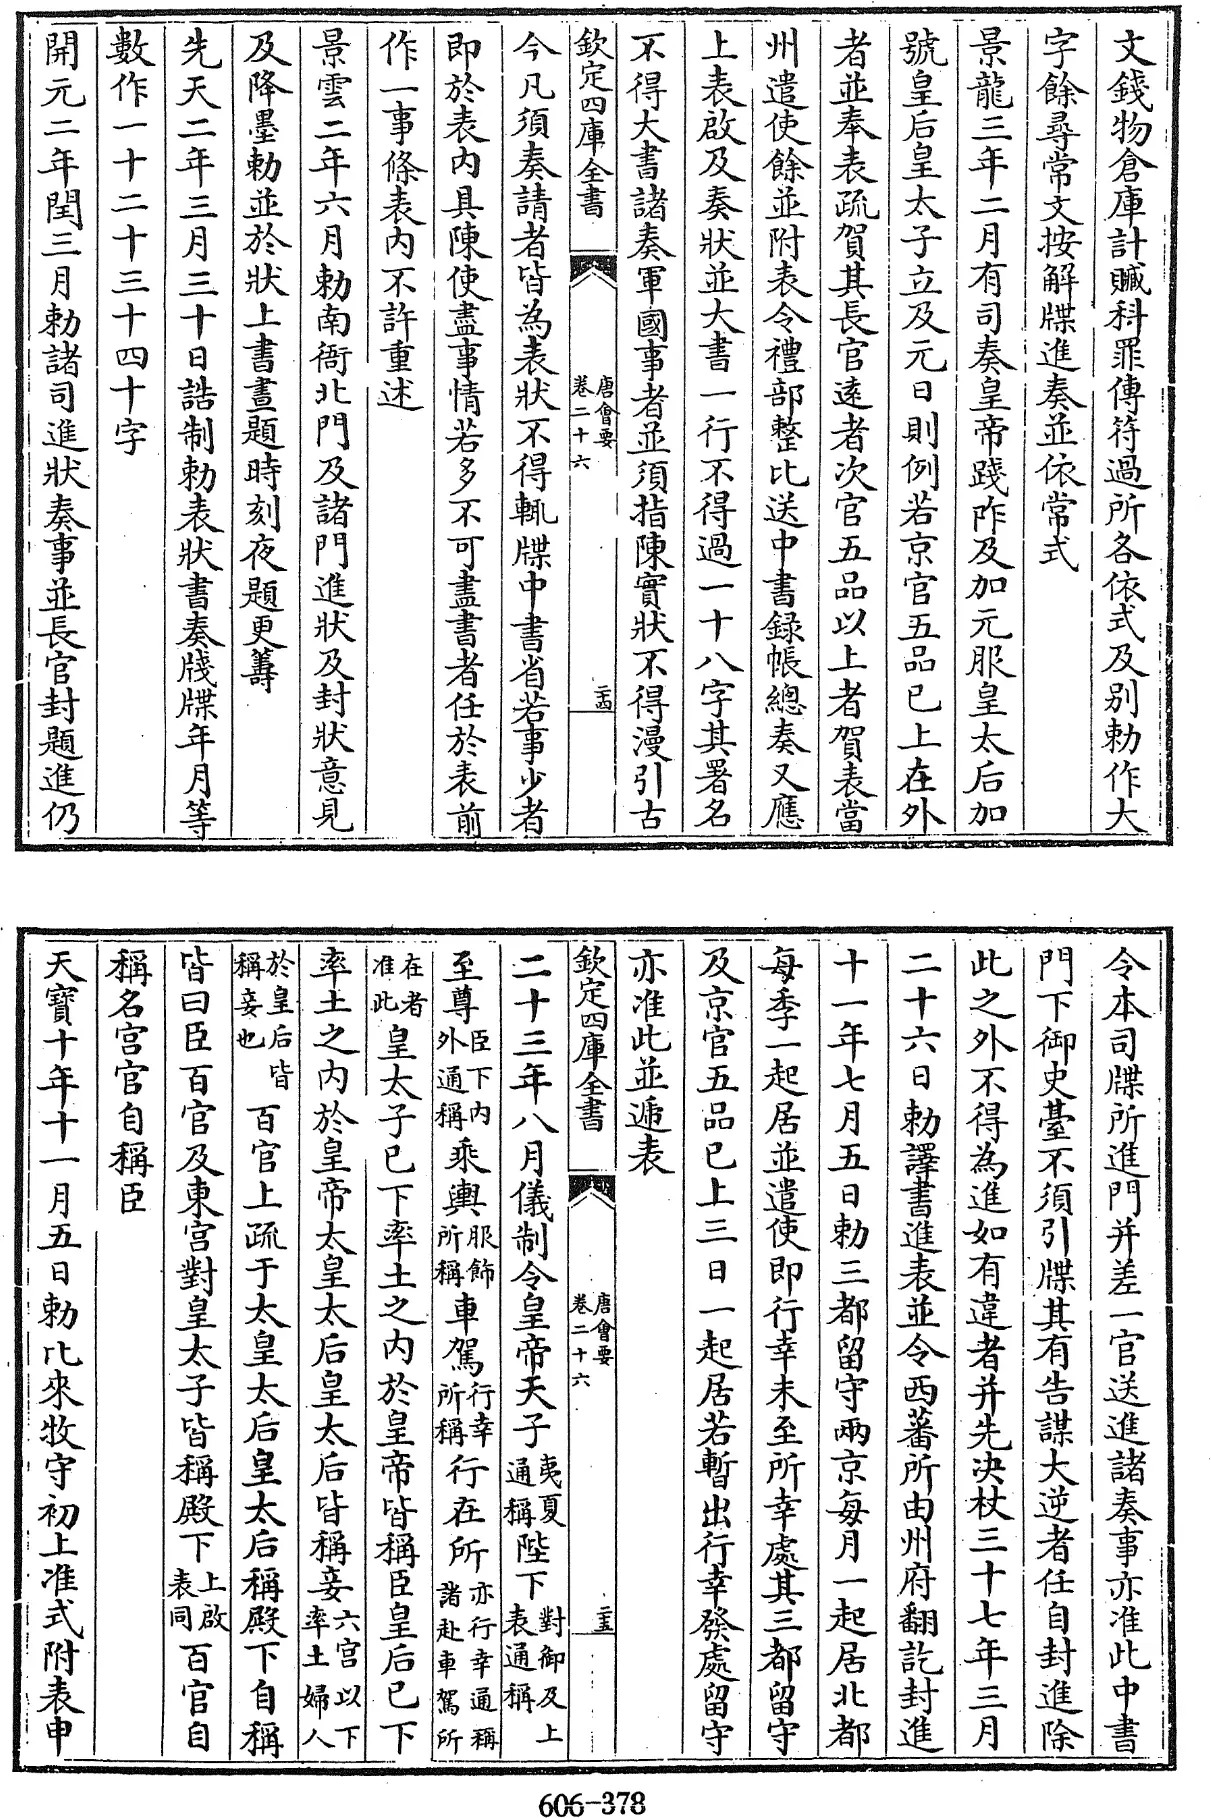 文錢物倉庫計贓科罪傳符過所各依式及别勅作大
字餘尋常文按解牒進奏並依常式
景龍三年二月有司奏皇帝踐阼及加元服皇太后加
號皇后皇太子立及元日則例若京官五品已上在外
者並奉表疏賀其長官逺者次官五品以上者賀表當
州遣使餘並附表令禮部整比送中書録帳總奏又應
上表啟及奏狀並大書一行不得過一十八字其署名
不得大書諸奏軍國事者並須指陳實狀不得漫引古
欽定四庫全書
唐會要
卷二十六
二十四
今凡須奏請者皆為表狀不得輒牒中書省若事少者
即於表内具陳使盡事情若多不可盡書者任於表前
作一事條表内不許重述
景雲二年六月勅南衙北門及諸門進狀及封狀意見
及降墨勅並於狀上書晝題時刻夜題更籌
先天二年三月三十日誥制勅表狀書奏牋牒年月等
數作一十二十三十四十字
開元二年閏三月勅諸司進狀奏事並長官封題進仍
令本司牒所進門并差一官送進諸奏事亦准此中書
門下御史臺不須引牒其有告謀大逆者任自封進除
此之外不得為進如有違者并先决杖三十七年三月
二十六日勅譯書進表並令西蕃所由州府翻訖封進
十一年七月五日勅三都留守兩京每月一起居北都
每季一起居並遣使即行幸未至所幸處其三都留守
及京官五品已上三日一起居若暫出行幸發處留守
亦准此並遞表
欽定四庫全書
唐會要
卷二十六
二十五
二十三年八月儀制令皇帝天子夷夏通稱陛下對御及上表通稱
至尊臣下内外通稱乘輿服飾所稱車駕行幸所稱行在所亦行幸通稱諸赴車駕所
在者准此皇太子已下率土之内於皇帝皆稱臣皇后已下
率土之内於皇帝太皇太后皇太后皆稱妾六宫以下率土婦人
於皇后皆稱妾也百官上疏于太皇太后皇太后稱殿下自稱
皆曰臣百官及東宫對皇太子皆稱殿下上啟表同百官自
稱名宫官自稱臣
天寶十年十一月五日勅比來牧守初上准式附表申
606-378